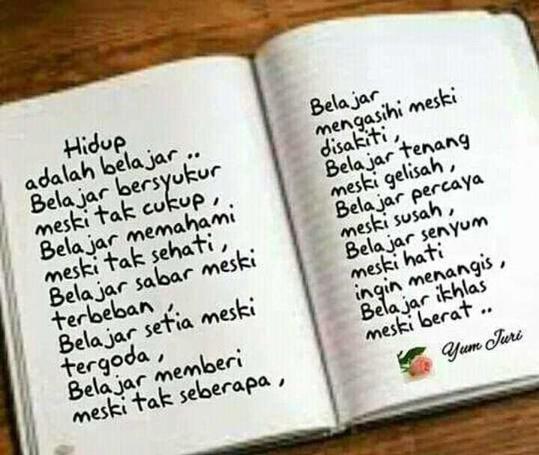 Hidup
adalah belajar ..
Belajar bersyukur
meski tak cukup ,
Belajar memahami
meski tak sehati ,
Belajar sabar meski
terbeban ,
Belajar setia meski
tergoda ,
Belajar memberi
meski tak seberapa ,
Belajar
mengasihi meski
disakiti ,
Belajar tenang
meski gelisah ,
Belajar percaya
meski susah ,
Belajar senyum
meski hati
ingin menangis ,
Belajar ikhlas
meski berat ..
Yum Juri